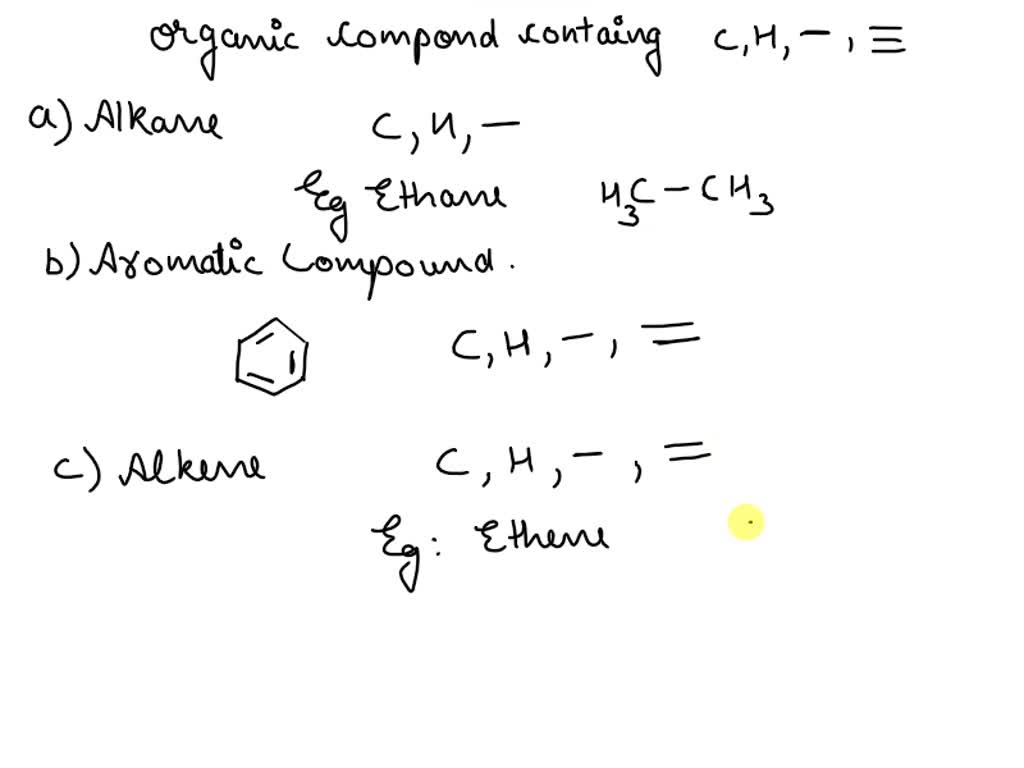 Organic compond containg C, H, −, ≡
a) Alkane C, H, −
Eg Ethane H3C − CH3
b) Aromatic Compound.
C, H, −, =
c) Alkene C, H, −, =
Eg: Ethene